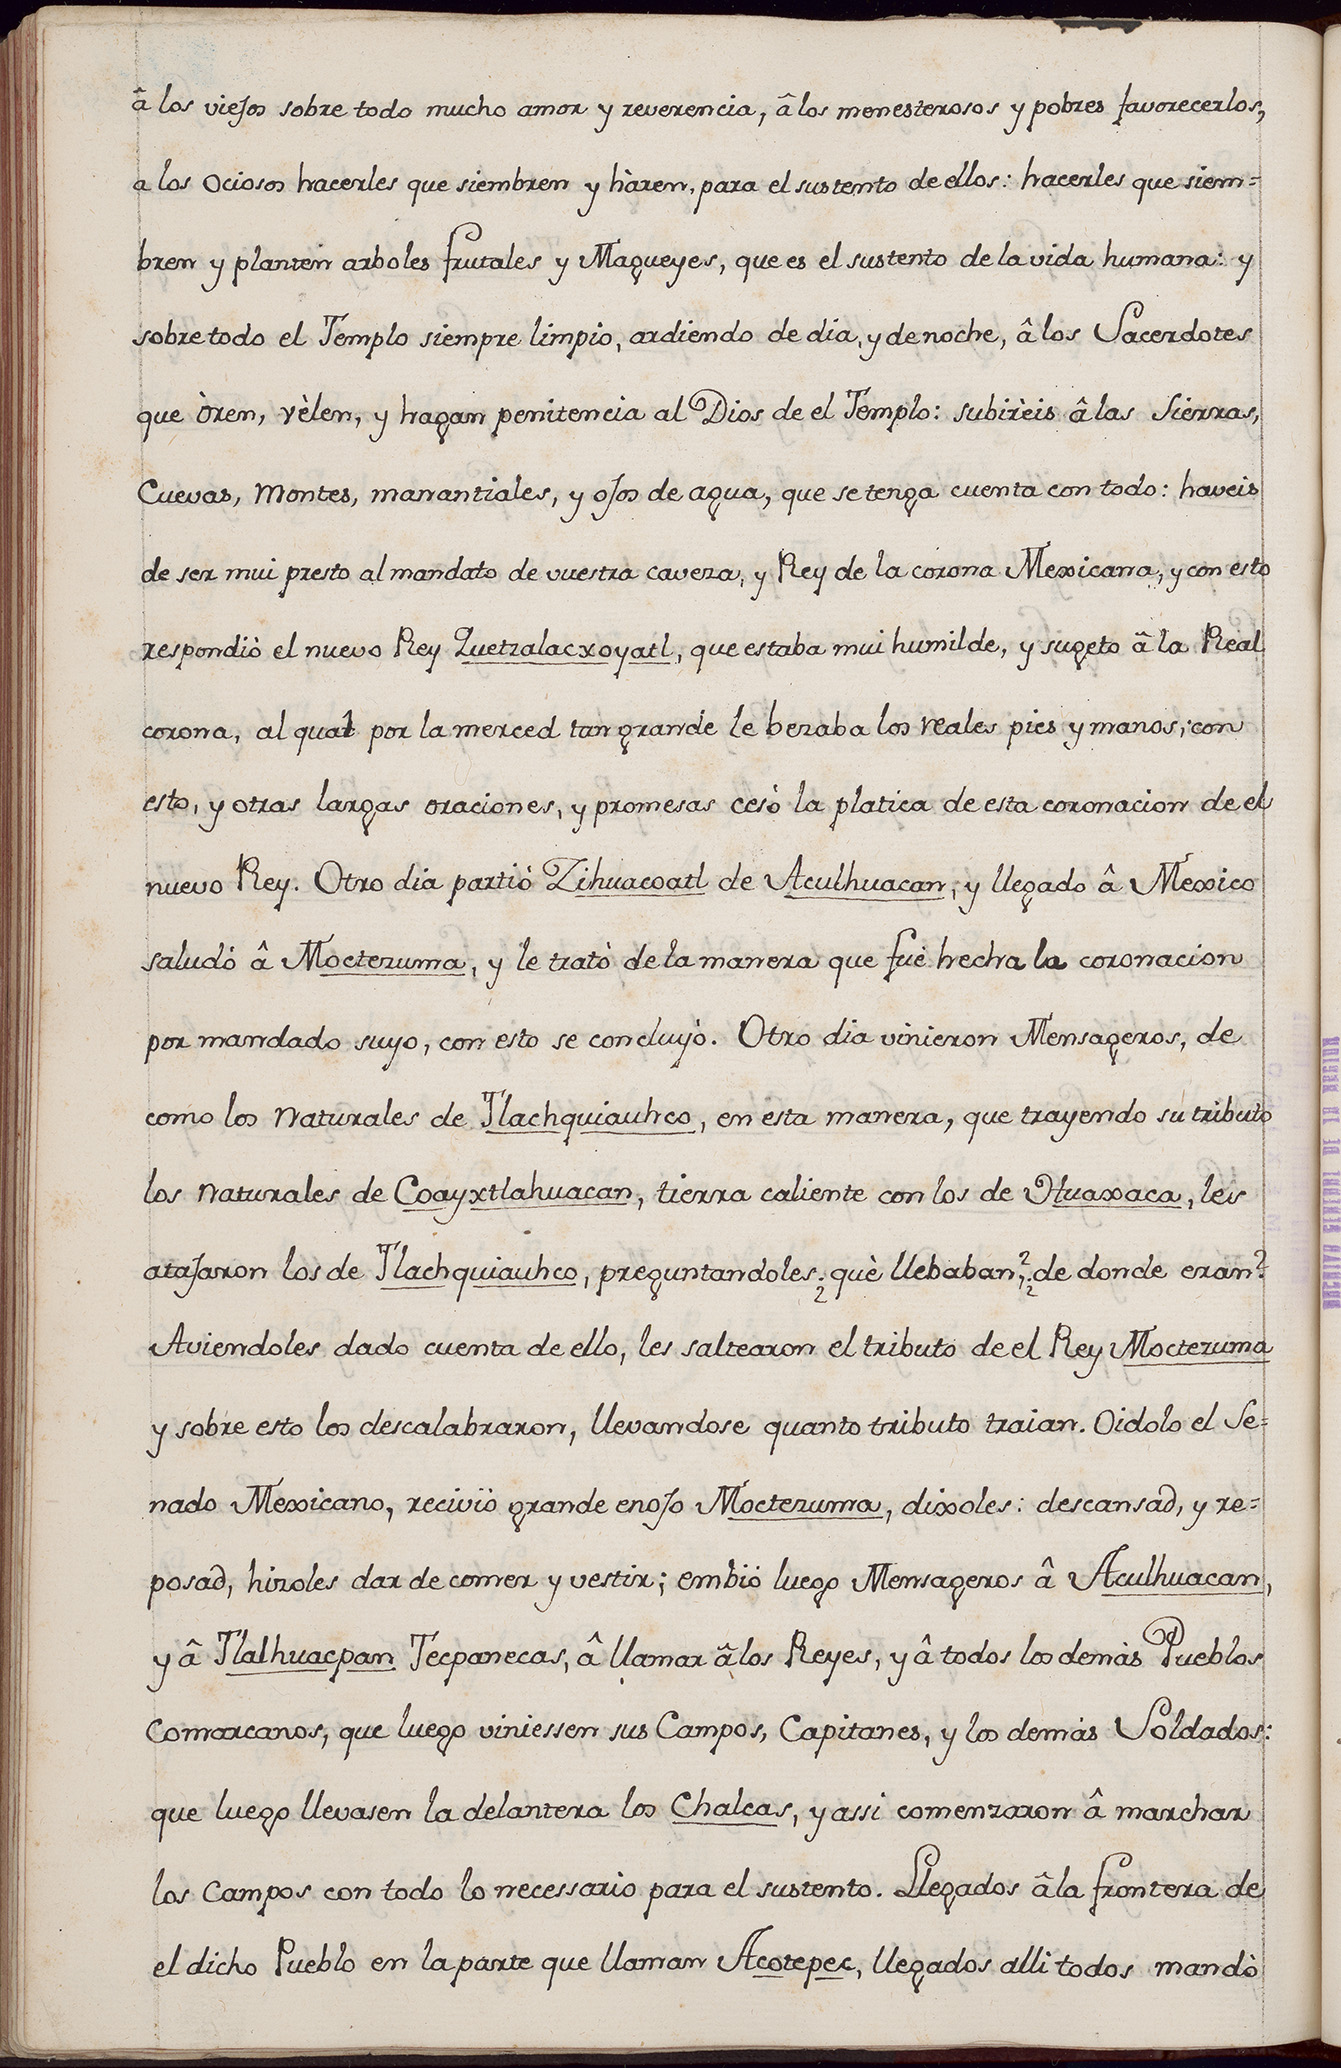 â los viejos sobre todo mucho amor y reverencia, â los menesterosos y pobres favorecerlos,
a los ociosos hacerles que siembren y hàren, para el sustento de ellos: hacerles que siem=
bren y planten arboles frutales y Magueyes, que es el sustento de la vida humana: y
sobre todo el Templo siempre limpio, ardiendo de dia, y de noche, â los Sacerdotes
que òren, vèlen, y hagan penitencia al Dios de el Templo: subirèis â las Sierras,
Cuevas, Montes, manantiales, y ojos de agua, que se tenga cuenta con todo: haveis
de ser mui presto al mandato de vuestra caveza, y Rey de la corona Mexicana, y con esto
respondiò el nuevo Rey Quetzalacxoyatl, que estaba mui humilde, y sugeto â la Real
corona, al qual por la merced tan grande le bezaba los reales pies y manos; con
esto, y otras largas oraciones, y promesas cesò la platica de esta coronacion de el
nuevo Rey. Otro dia partiò Zihuacoatl de Aculhuacan, y llegado â Mexico
saludò â Moctezuma, y le tratò de la manera que fuè hecha la coronacion
por mandado suyo, con esto se concluyò. Otro dia vinieron Mensageros, de
como los Naturales de Tlachquiauhco, en esta manera, que trayendo su tributo
los Naturales de Coayxtlahuacan, tierra caliente con los de Huaxaca, les
atajaron los de Tlachquiauhco, preguntandoles ¿què llebaban?, ¿de donde eran?
Aviendoles dado cuenta de ello, les saltearon el tributo de el Rey Moctezuma
y sobre esto los descalabraron, llevandose quanto tributo traian. Oidolo el Se=
nado Mexicano, reciviò grande enojo Moctezuma, dixoles: descansad, y re=
posad, hizoles dar de comer y vestir; embiò luego Mensageros â Aculhuacan,
y â Tlalhuacpan Tecpanecas, â llamar â los Reyes, y â todos los demàs Pueblos
Comarcanos, que luego viniessen sus Campos, Capitanes, y los demàs Soldados:
que luego llevasen la delantera los Chalcas, y assi comenzaron â marchar
los Campos con todo lo necessario para el sustento. Llegados â la frontera de
el dicho Pueblo en la parte que llaman Acotepec, llegados alli todos mandò
ARCHIVO GENERAL DE LA NACION